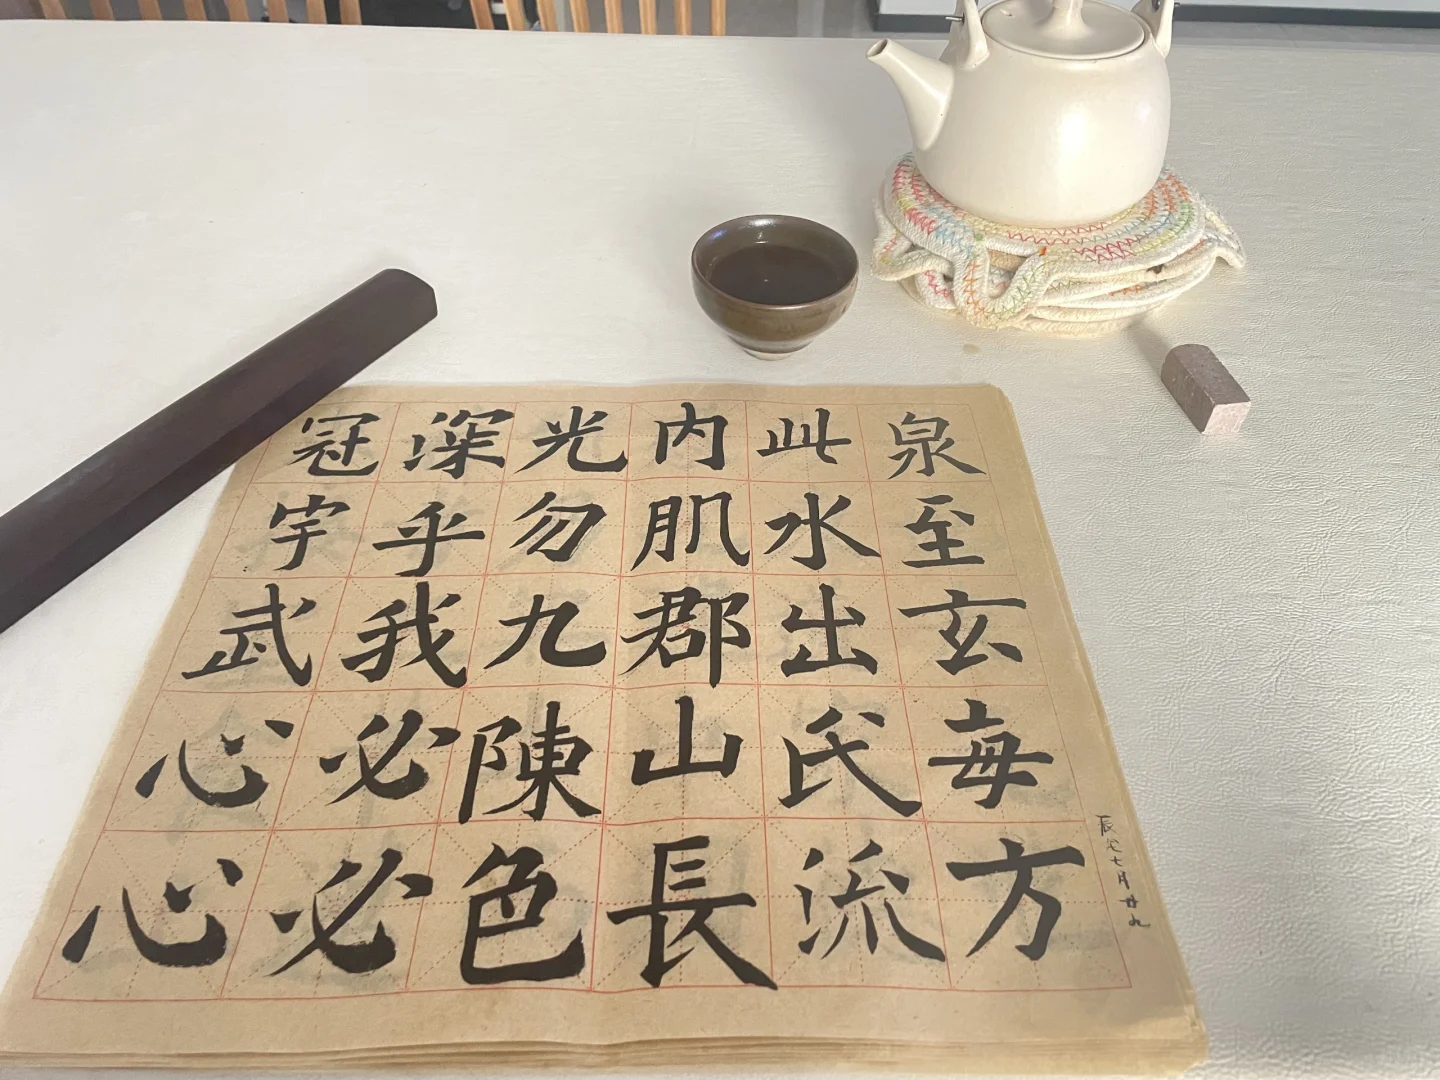 辰龙七月廿九
泉至玄每方
此水出氏流
内肌郡山長
光勿九陳色
深乎我必必
冠宇武心心